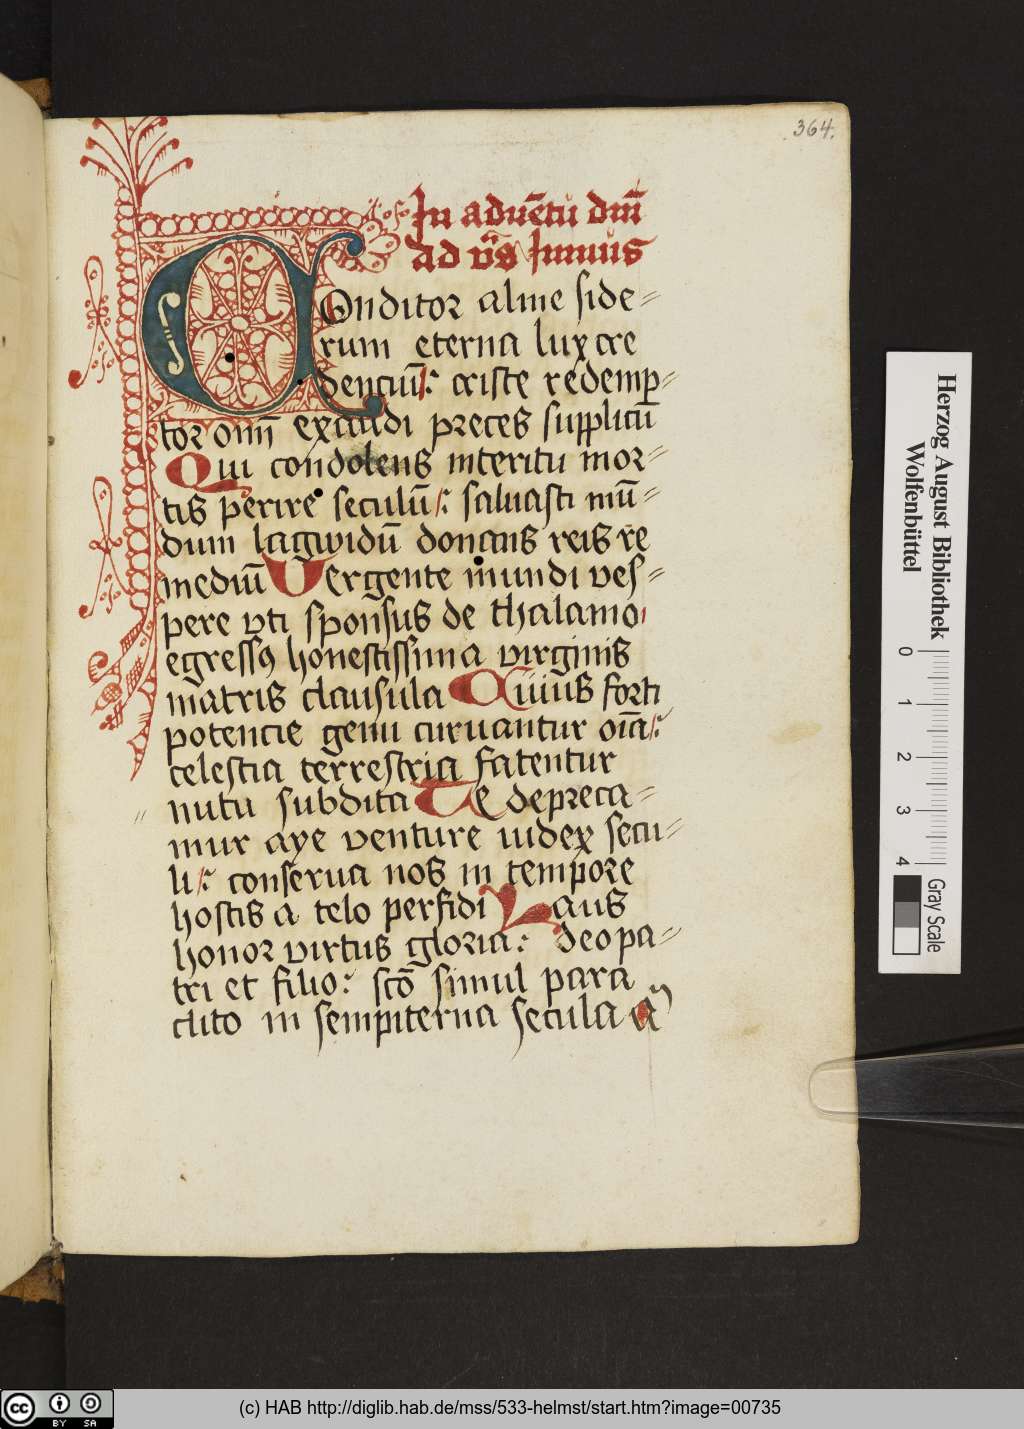 364.
In aduētū dnī
ad vs̄ hmnus
Conditor alme side=
rum eterna lux cre
denciū: criste redemp=
tor om̄ exaudi preces supplicū
Qui condolens interitu mor=
tis perire seculū: saluasti mū=
dum lagwidū donans reis re
mediū Vergente mundi ves=
pere vti sponsus de thalamo
egressꝯ honestissima virginis
matris clausula Cuius forti
potencie genu curuantur oīa:
celestia terrestria fatentur
nutu subdita Te depreca=
mur aye venture iudex secu=
li: conserua nos in tempore
hostis a telo perfidi Laus
honor virtus gloria: deo pa=
tri et filio: sc̄o simul para
clito in sempiterna secula a
Herzog August Bibliothek
Wolfenbüttel
0 1 2 3 4
Gray Scale
cc BY SA
(c) HAB http://diglib.hab.de/mss/533-helmst/start.htm?image=00735